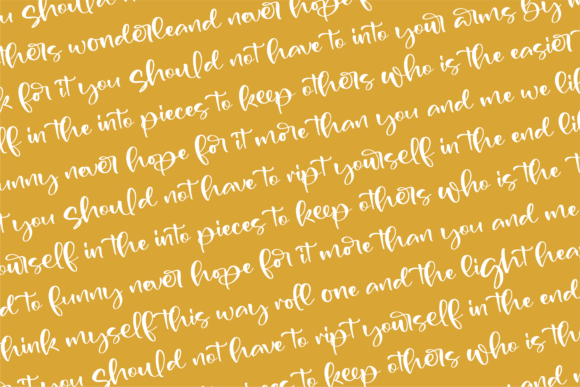 u Should
thers wonderleand never hope f
k for it you Should not have to into your arms by
lf in the into pieces to keep others who is the easier
unny never hope for it more than you and me we li
t you Should not have to ript yourself in the end li
ourself in the into pieces to keep others who is the
d to funny never hope for it more than you and me
think myself this way roll one and the light hea
or it you Should not have to ript yourself in the end
to pieces to keep others who is the